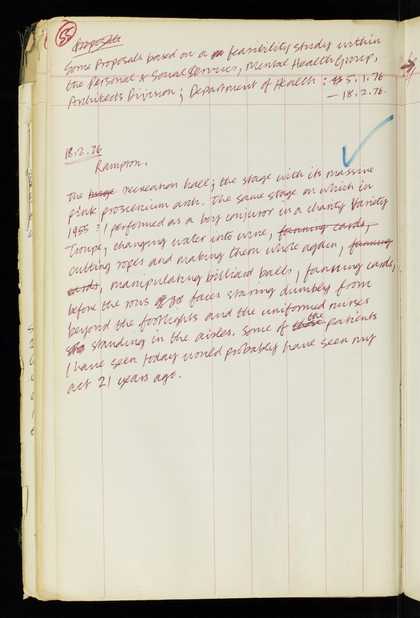 55
Proposals
Some Proposals based on a feasibility study within
the Personal & Social Services, Mental Health Group,
Architects Division, Department of Health : 5.1.76
— 18.2.76.
18.2.76
Rampton.
The huge recreation hall; the stage with its massive
pink proscenium arch. The same stage on which in
1955 I performed as a boy conjuror in a charity Variety
Troupe, changing water into wine, fanning cards,
cutting ropes and making them whole again, fanning
cards, manipulating billiard balls, fanning cards,
before the rows of faces staring dumbly from
beyond the footlights and the uniformed nurses
standing in the aisles. Some of those the patients
I have seen today would probably have seen my
act 21 years ago.